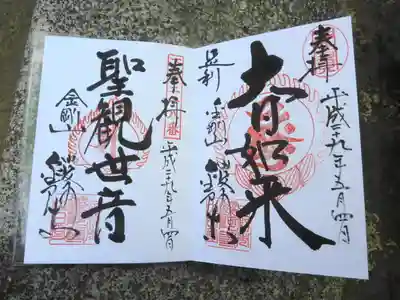 奉拝
平成二九年五月四日
大日如来
足利 金剛山 鑁阿寺
奉拝 平成二九年五月四日
聖観世音
金剛山 鑁阿寺